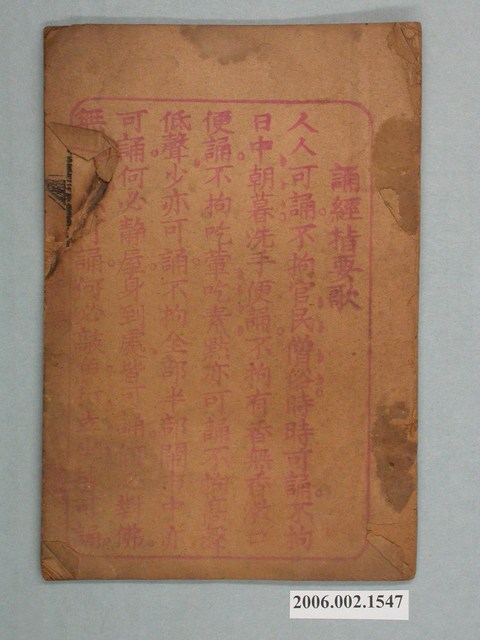 誦經指要歌
人人可誦不拘官民僧俗時時可誦不拘
日中朝暮洗手便誦不拘有香無香漱口
便誦不拘吃葷吃素默亦可誦不拘高聲
低聲少亦可誦不拘全部半部鬧中亦
可誦何必靜座身到處皆可誦何必對佛
無 可誦何必 可誦
2006.002.1547